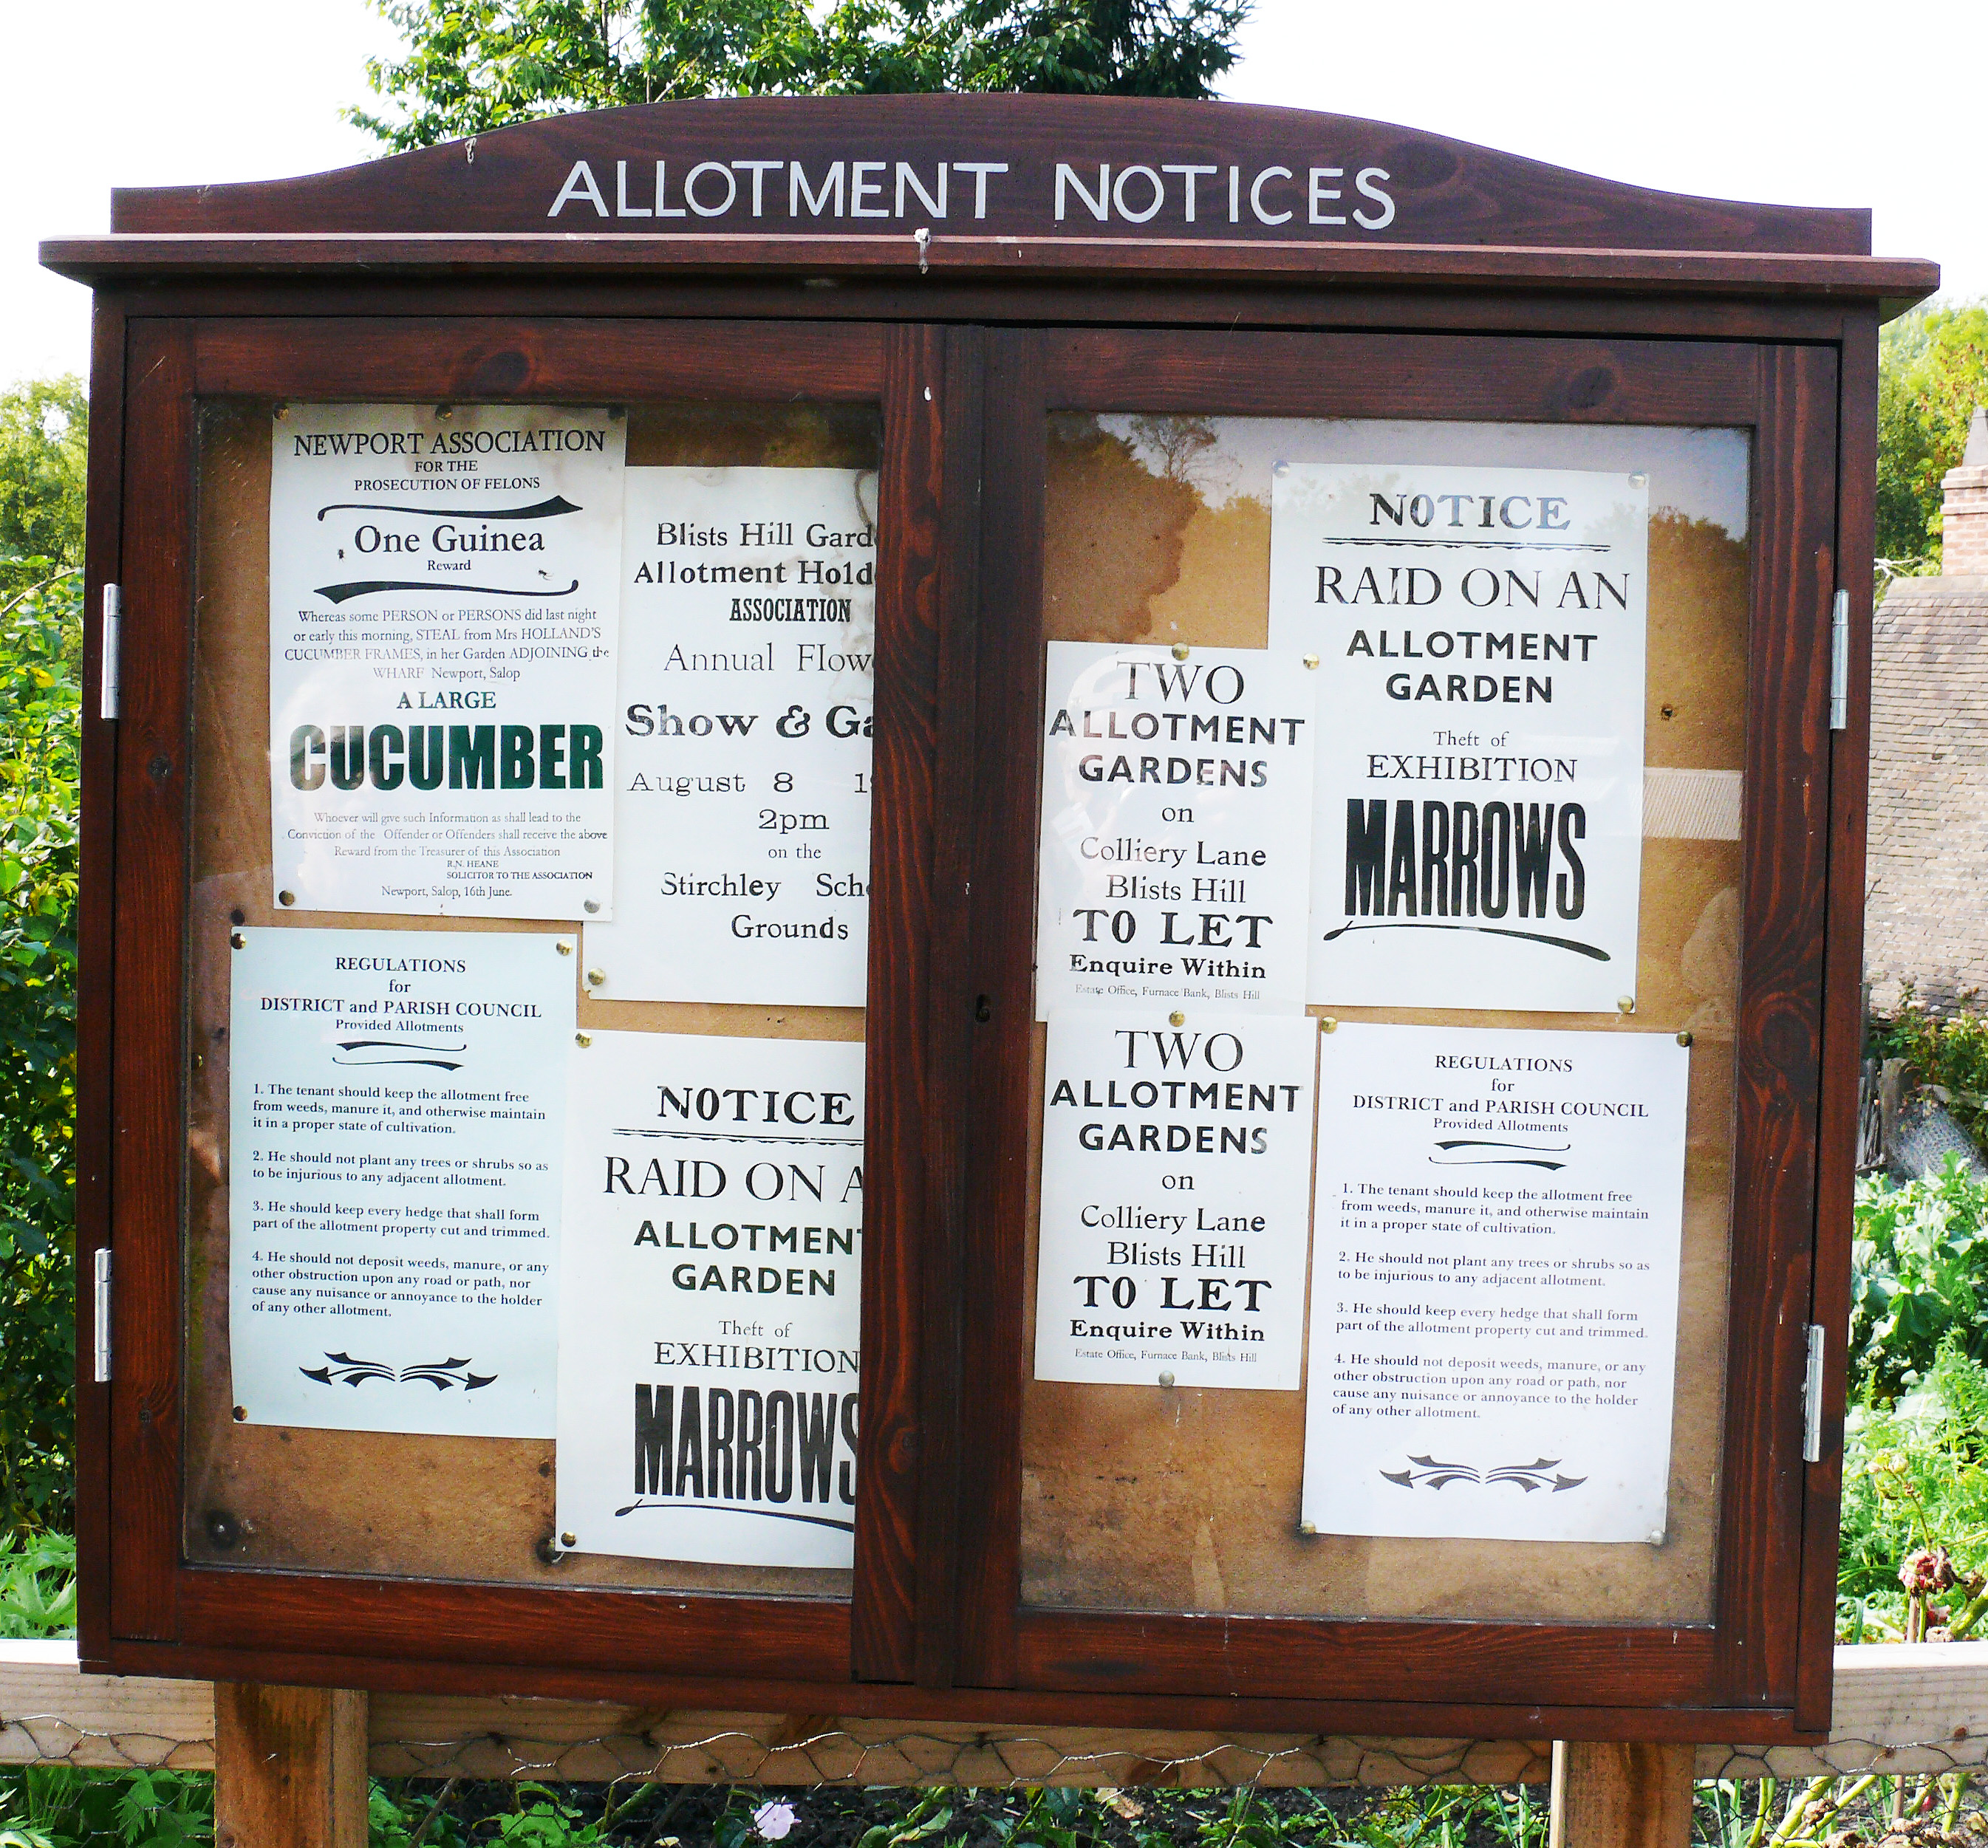 ALLOTMENT NOTICES
NEWPORT ASSOCIATION
FOR THE
PROSECUTION OF FELONS
One Guinea
Reward
Whereas some PERSON or PERSONS did last night
or early this morning, STEAL from Mrs HOLLAND'S
CUCUMBER FRAMES, in her Garden ADJOINING the
WHARF Newport, Salop
A LARGE
CUCUMBER
Whoever will give such Information as shall lead to the
Conviction of the Offender or Offenders shall receive the above
Reward from the Treasurer of this Association
R.N. HEANE
SOLICITOR TO THE ASSOCIATION
Newport, Salop, 16th June.
Blists Hill Gard
Allotment Hold
ASSOCIATION
Annual Flow
Show & Ga
August 8 1
2pm
on the
Stirchley Sch
Grounds
REGULATIONS
for
DISTRICT and PARISH COUNCIL
Provided Allotments
1. The tenant should keep the allotment free
from weeds, manure it, and otherwise maintain
it in a proper state of cultivation.
2. He should not plant any trees or shrubs so as
to be injurious to any adjacent allotment.
3. He should keep every hedge that shall form
part of the allotment property cut and trimmed.
4. He should not deposit weeds, manure, or any
other obstruction upon any road or path, nor
cause any nuisance or annoyance to the holder
of any other allotment.
NOTICE
RAID ON A
ALLOTMENT
GARDEN
Theft of
EXHIBITION
MARROWS
TWO
ALLOTMENT
GARDENS
on
Colliery Lane
Blists Hill
TO LET
Enquire Within
Estate Office, Furnace Bank, Blists Hill
NOTICE
RAID ON AN
ALLOTMENT
GARDEN
Theft of
EXHIBITION
MARROWS
TWO
ALLOTMENT
GARDENS
on
Colliery Lane
Blists Hill
TO LET
Enquire Within
Estate Office, Furnace Bank, Blists Hill
REGULATIONS
for
DISTRICT and PARISH COUNCIL
Provided Allotments
1. The tenant should keep the allotment free
from weeds, manure it, and otherwise maintain
it in a proper state of cultivation.
2. He should not plant any trees or shrubs so as
to be injurious to any adjacent allotment.
3. He should keep every hedge that shall form
part of the allotment property cut and trimmed.
4. He should not deposit weeds, manure, or any
other obstruction upon any road or path, nor
cause any nuisance or annoyance to the holder
of any other allotment.